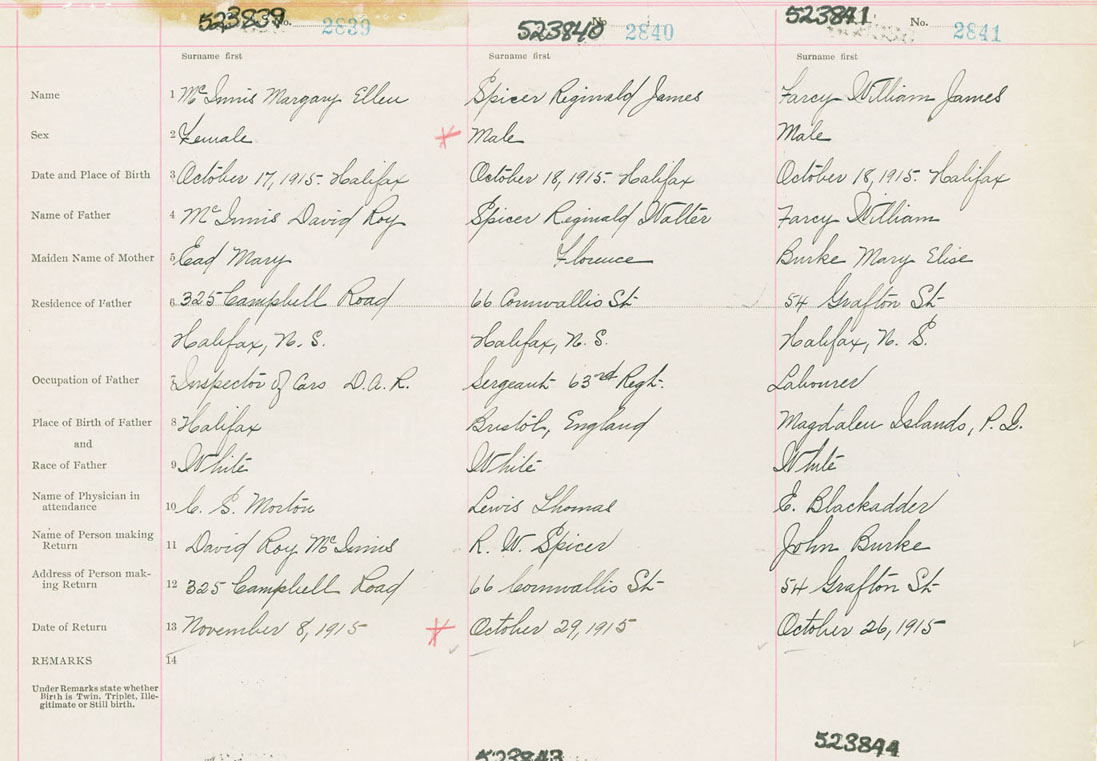 523839 No. 2839 523840 No 2840 523841 No. 2841
Surname first Surname first Surname first
Name 1 McInnis Margary Ellen Spicer Reginald James Farcy William James
Sex 2 Female Male Male
Date and Place of Birth 3 October 17, 1915. Halifax October 18, 1915. Halifax October 18, 1915. Halifax
Name of Father 4 McInnis David Roy Spicer Reginald Walter Farcy William
Maiden Name of Mother 5 Ead Mary Florence Burke Mary Elise
Residence of Father 6 325 Campbell Road 66 Cornwallis St. 54 Grafton St.
Halifax, N. S. Halifax, N. S. Halifax, N. S.
Occupation of Father 7 Inspector of Cars D.A.R. Sergeant 63rd Regt. Labourer
Place of Birth of Father 8 Halifax Bristol, England Magdalen Islands, P. I.
and
Race of Father 9 White White White
Name of Physician in
attendance 10 C. S. Morton Lewis Thomas E. Blackadder
Name of Person making
Return 11 David Roy McInnis R. W. Spicer John Burke
Address of Person mak-
ing Return 12 325 Campbell Road 66 Cornwallis St. 54 Grafton St.
Date of Return 13 November 8, 1915 October 29, 1915 October 26, 1915
REMARKS 14
Under Remarks state whether
Birth is Twin, Triplet, Ille-
gitimate or Still birth.
523843 523844